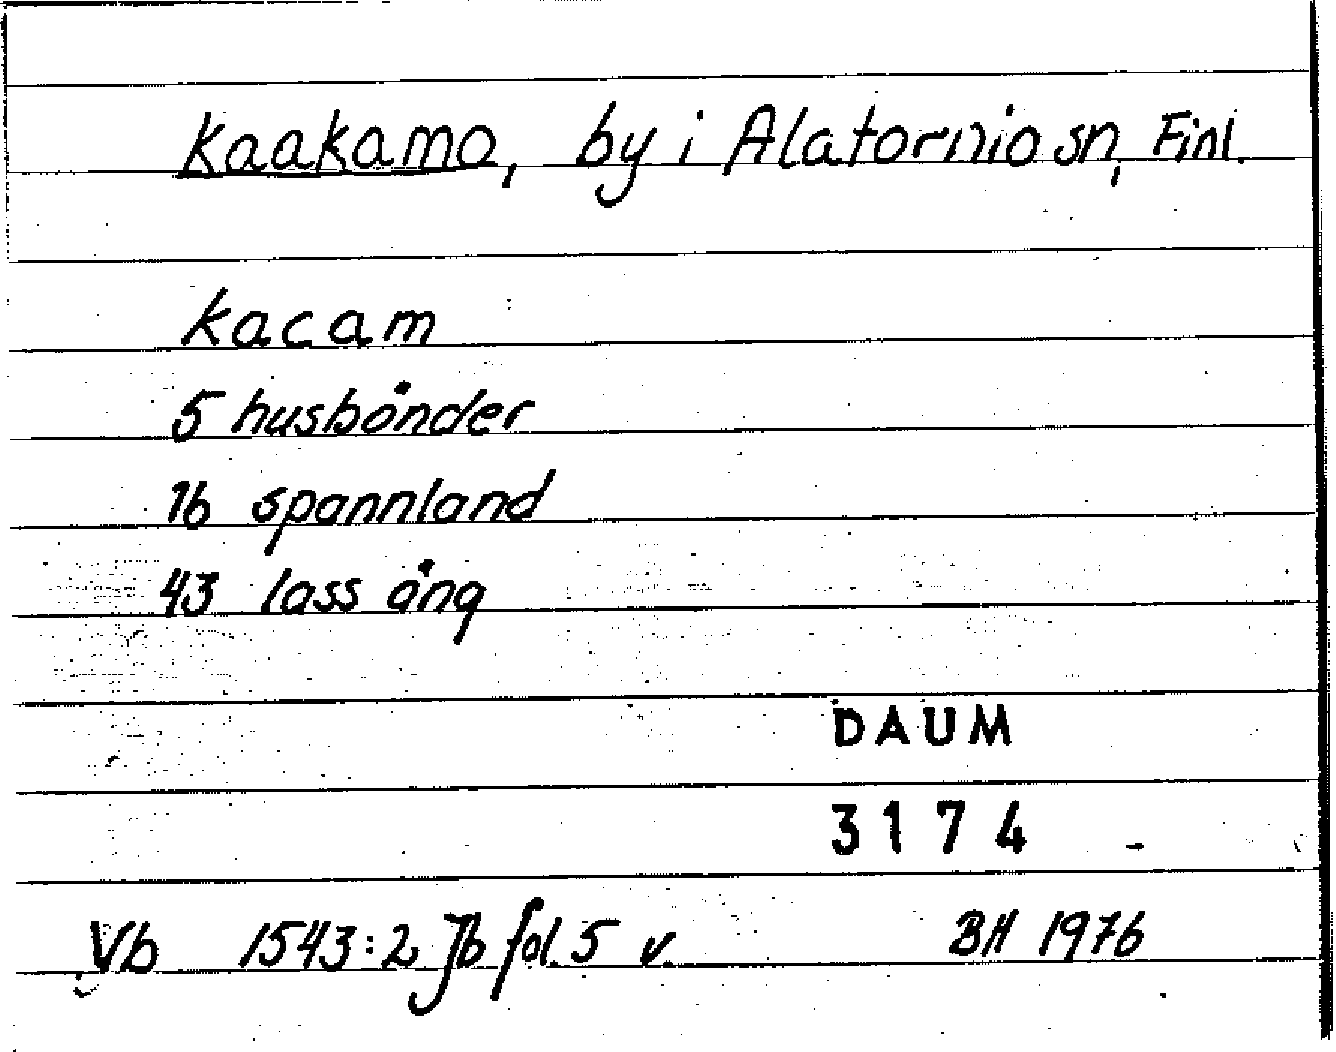 Kaakamo, by i Alatornio sn, Finl.
Kacam
5 husbönder
16 spannland
43 lass äng
DAUM
3174
Vb 1543:2 Jb fol. 5 v. BH 1976